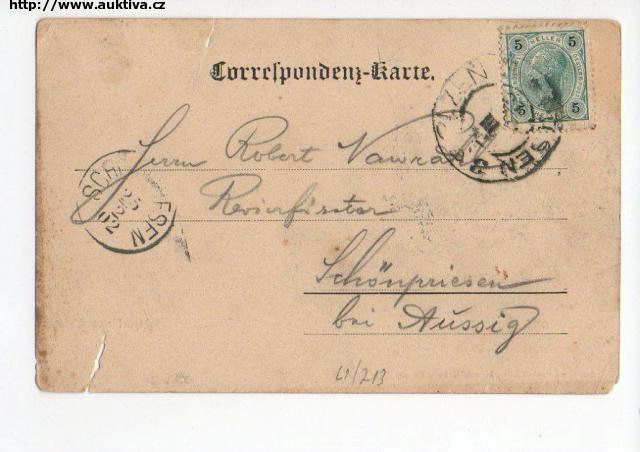 http://www.auktiva.cz
Correspondenz-Karte.
5 5
HELLER
5 5
Herrn Robert Nawra
Revierförster
Schönpriesen
bei Aussig
25
02
41/213